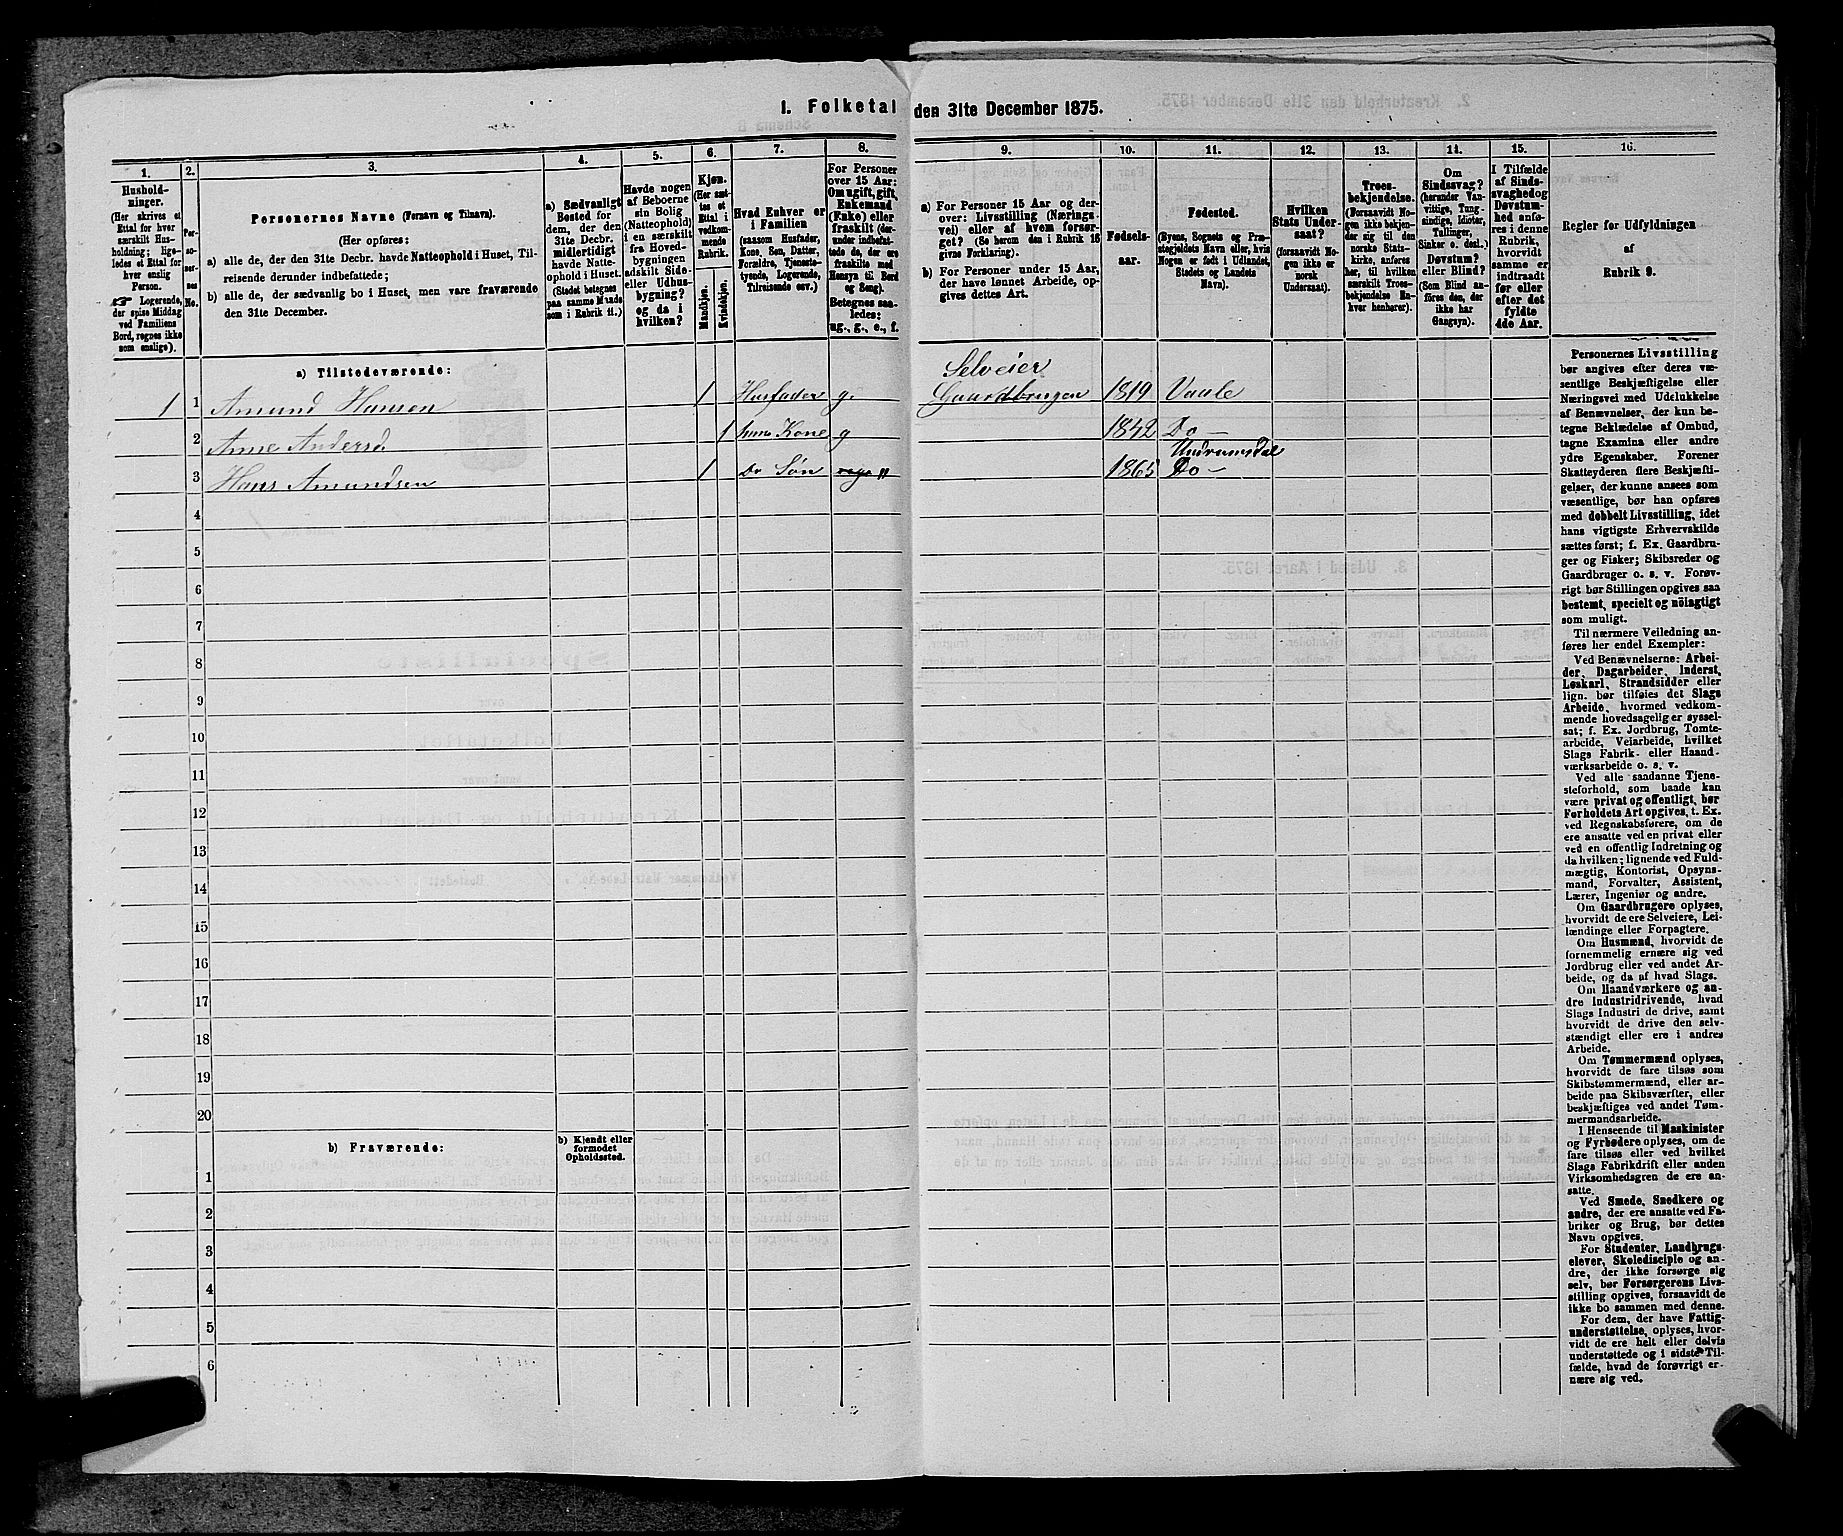 1. Folketal den 31te December 1875.
1.
2.
3.
4.
5.
6.
7.
8.
9.
10.
11.
12.
13.
14.
15.
16.
Hushold-
ninger.
(Her skrives et
Ettal for hver
særskilt Hus-
holdning; lige-
ledes et Ettal for
hver enslig
Person.
☞ Logerende,
der spise Middag
ved Familiens
Bord, regnes ikke
som enslige).
Per-
so-
ner-
nes
No.
Personernes Navne (Fornavn og Tilnavn).
(Her opføres:
a) alle de, der den 31te Decbr. havde Natteophold i Huset, Til-
reisende derunder indbefattede;
b) alle de, der sædvanlig bo i Huset, men vare fraværende
den 31te December.
a) Sædvanligt
Bosted for
dem, der den
31te Decbr.
midlertidigt
havde Natte-
ophold i Huset.
(Stedet betegnes
paa samme Maade
som i Rubrik 11.)
Havde nogen
af Beboerne
sin Bolig
(Natteophold)
i en særskilt
fra Hoved-
bygningen
adskilt Side-
eller Udhus-
bygning?
og da i
hvilken?
Kjøn.
(Her sæt-
tes et
Ettal i
vedkom-
mende
Rubrik.
Mandkjøn.
Kvindekjøn.
Hvad Enhver er
i Familien
(saasom Husfader,
Kone, Søn, Datter,
Forældre, Tjeneste-
tyende, Logerende,
Tilreisende osv.)
For Personer
over 15 Aar:
Om ugift, gift,
Enkemand
(Enke) eller
fraskilt (der-
under indbefat-
tede de, der ere
fraskilte med
Hensyn til Bord
og Seng).
Betegnes saa-
ledes:
ug., g., e., f.
a) For Personer 15 Aar og der-
over: Livsstilling (Nærings-
vei) eller af hvem forsør-
get? (Se herom den i Rubrik 16
givne Forklaring).
b) For Personer under 15 Aar,
der have lønnet Arbeide, op-
gives dettes Art.
Fødsels-
aar.
Fødested.
(Byens, Sognets og Præ-
stegjeldets Navn eller, hvis
Nogen er født i Udlandet,
Stedets og Landets
Navn).
Hvilken
Stats Under-
saat?
(forsaavidt No-
gen ikke er
norsk
Undersaat).
Troes-
bekjendelse.
(Forsaavidt No-
gen ikke bekjen-
der sig til den
norske Stats-
kirke, anføres
her, til hvilken
særskilt Troes-
bekjendelse En-
hver henhører).
Om
Sindssvag?
(herunder Van-
vittige, Tung-
sindige, Idioter,
Tullinger,
Sinker o. desl.)
Døvstum?
eller Blind?
(Som Blind an-
føres den, der
ikke har
Gangsyn).
I Tilfælde
af Sinds-
svaghed og
Døvstum-
hed anfø-
res i denne
Rubrik,
hvorvidt
samme er
indtraadt
før eller
efter det
fyldte
4de Aar.
Regler for Udfyldningen
af
Rubrik 9.
a) Tilstedeværende:
Selveier
1 1 Amund Hansen 1 Husfader g. Gaardbrugen 1819 Vaale
2 Anne Andersd. 1 hans Kone g 1842 Do —
Undrumsdal
3 Hans Amundsen 1 Do Søn 1865 Do —
4
5
6
7
8
9
10
11
12
13
14
15
16
17
18
19
20
b) Fraværende:
b) Kjendt eller
formodet
Opholdssted.
1
2
3
4
5
6
Personernes Livsstilling
bør angives efter deres væ-
sentlige Beskjæftigelse eller
Næringsvei med Udelukkelse
af Benævnelser, der kun be-
tegne Beklædelse af Ombud,
tagne Examina eller andre
ydre Egenskaber. Forener
Skatteyderen flere Beskjæfti-
gelser, der kunne ansees som
væsentlige, bør han opføres
med dobbelt Livsstilling, idet
hans vigtigste Erhvervskilde
sættes først; f. Ex. Gaardbru-
ger og Fisker; Skibsreder og
Gaardbruger o. s. v. Forøv-
rigt bør Stillingen opgives saa
bestemt, specielt og nöiagtigt
som muligt.
Til nærmere Veiledning an-
føres her endel Exempler:
Ved Benævnelserne: Arbei-
der, Dagarbeider, Inderst,
Løskarl, Strandsidder eller
lign. bør tilføies det Slags
Arbeide, hvormed vedkom-
mende hovedsagelig er syssel-
sat; f. Ex. Jordbrug, Tomte-
arbeide, Veiarbeide, hvilket
Slags Fabrik- eller Haand-
værksarbeide o. s. v.
Ved alle saadanne Tjene-
steforhold, som baade kan
være privat og offentligt, bør
Forholdets Art opgives, t. Ex.
ved Regnskabsførere, om de
ere ansatte ved en privat eller
ved en offentlig Indretning og
da hvilken; lignende ved Fuld-
mægtig, Kontorist, Opsyns-
mand, Forvalter, Assistent,
Lærer, Ingeniør og andre.
Om Gaardbrugere oplyses,
hvorvidt de ere Selveiere, Lei-
lændinge eller Forpagtere.
Om Husmænd, hvorvidt de
fornemmelig ernære sig ved
Jordbrug eller ved andet Ar-
beide, og da af hvad Slags.
Om Haandværkere og an-
dre Industridrivende, hvad
Slags Industri de drive, samt
hvorvidt de drive den selv-
stændigt eller ere i andres
Arbeide.
Om Tømmermænd oplyses,
hvorvidt de fare tilsøs som
Skibstømmermænd, eller ar-
beide paa Skibsværfter, eller
beskjæftiges ved andet Tøm-
mermandsarbeide.
I Henseende til Maskinister
og Fyrbødere oplyses, om de
fare tilsøs eller ved hvilket
Slags Fabrikdrift eller anden
Virksomhedsgren de ere an-
satte.
Ved Smede, Snedkere og
andre, der ere ansatte ved Fa-
briker og Brug, bør dettes
Navn opgives.
For Studenter, Landbrugs-
elever, Skoledisciple og an-
dre, der ikke forsørge sig
selv, bør Forsørgerens Livs-
stilling opgives, forsaavidt de
ikke bo sammen med denne.
For dem, der have Fattig-
understøttelse, oplyses, hvor-
vidt de ere helt eller delvis
understøttede og i sidste Til-
fælde, hvad de forøvrigt er-
nære sig ved.